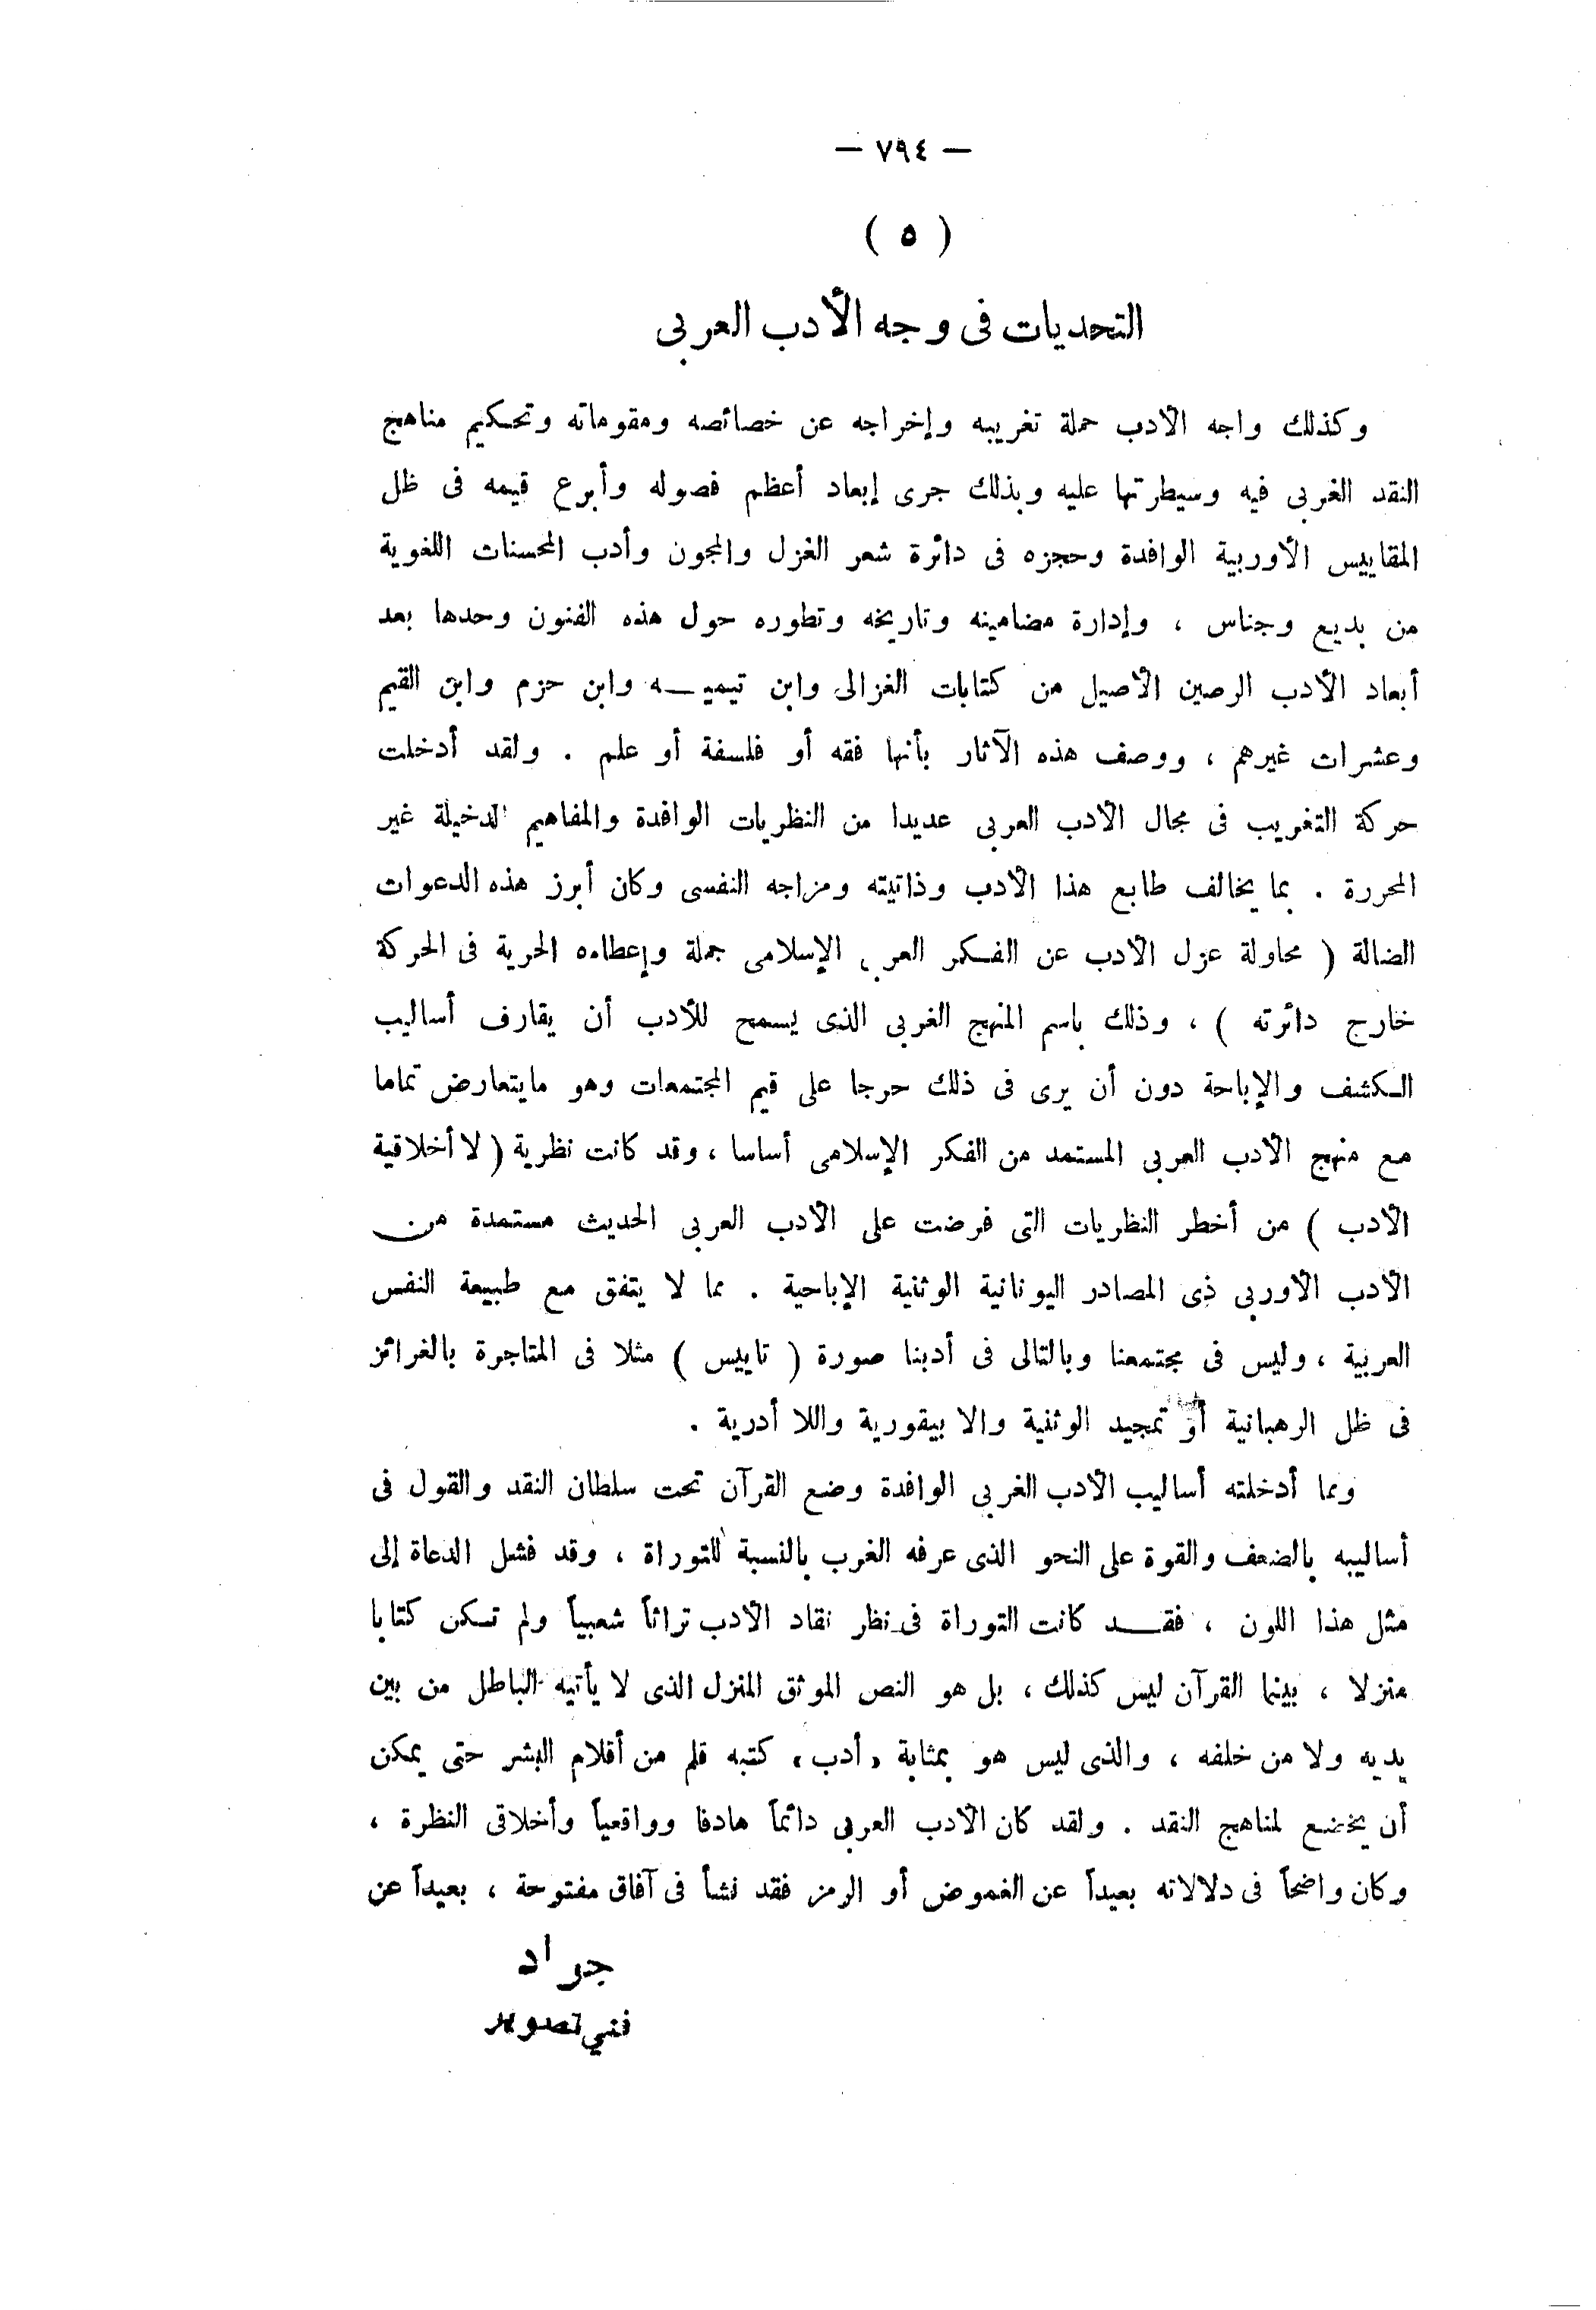 — ٧٩٤ —
( ٥ )
التحديات فى وجه الأدب العربى
وكذلك واجه الأدب حملة تغريبه وإخراجه عن خصائصه ومقوماته وتحكيم مناهج
النقد الغربى فيه وسيطرتها عليه وبذلك جرى إبعاد أعظم فصوله وأبرع قيمه فى ظل
المقاييس الأوربية الوافدة وحجزه فى دائرة شعر الغزل والمجون وأدب المحسنات اللغوية
من بديع وجناس ، وإدارة مضامينه وتاريخه وتطوره حول هذه الفنون وحدها بعد
أبعاد الأدب الرصين الأصيل من كتابات الغزالى وابن تيميـه وابن حزم وابن القيم
وعشرات غيرهم ، ووصف هذه الآثار بأنها فقه أو فلسفة أو علم . ولقد أدخلت
حركة التغريب فى مجال الأدب العربى عديدا من النظريات الوافدة والمفاهيم الدخيلة غير
المحررة . بما يخالف طابع هذا الأدب وذاتيته ومزاجه النفسى وكان أبرز هذه الدعوات
الضالة ( محاولة عزل الأدب عن الفكر العربى الإسلامى جملة وإعطاءه الحرية فى الحركة
خارج دائرته ) ، وذلك باسم المنهج الغربى الذى يسمح للأدب أن يقارف أساليب
الكشف والإباحة دون أن يرى فى ذلك حرجا على قيم المجتمعات وهو مايتعارض تماما
مع منهج الأدب العربى المستمد من الفكر الإسلامى أساسا ، وقد كانت نظرية ( لا أخلاقية
الأدب ) من أخطر النظريات التى فرضت على الأدب العربى الحديث مستمدة من
الأدب الأوربى ذى المصادر اليونانية الوثنية الإباحية . مما لا يتفق مع طبيعة النفس
العربية ، وليس فى مجتمعنا وبالتالى فى أدبنا صورة ( تاييس ) مثلا فى المتاجرة بالغرائز
فى ظل الرهبانية أو تمجيد الوثنية والا بيقورية واللا أدرية .
ومما أدخلته أساليب الأدب الغربى الوافدة وضع القرآن تحت سلطان النقد والقول فى
أساليبه بالضعف والقوة على النحو الذى عرفه الغرب بالنسبة للتوراة ، وقد فشل الدعاة إلى
مثل هذا اللون ، فقـد كانت التوراة فى نظر نقاد الأدب تراثاً شعبياً ولم تكن كتابا
منزلا ، بينما القرآن ليس كذلك ، بل هو النص الموثق المنزل الذى لا يأتيه الباطل من بين
يديه ولا من خلفه ، والذى ليس هو بمثابة «أدب» كتبه قلم من أقلام البشر حتى يمكن
أن يخضع لمناهج النقد . ولقد كان الأدب العربى دائماً هادفا وواقعياً وأخلاقى النظرة ،
وكان واضحاً فى دلالاته بعيداً عن الغموض أو الرمز فقد نشأ فى آفاق مفتوحة ، بعيداً عن
جواد
فني تصوير